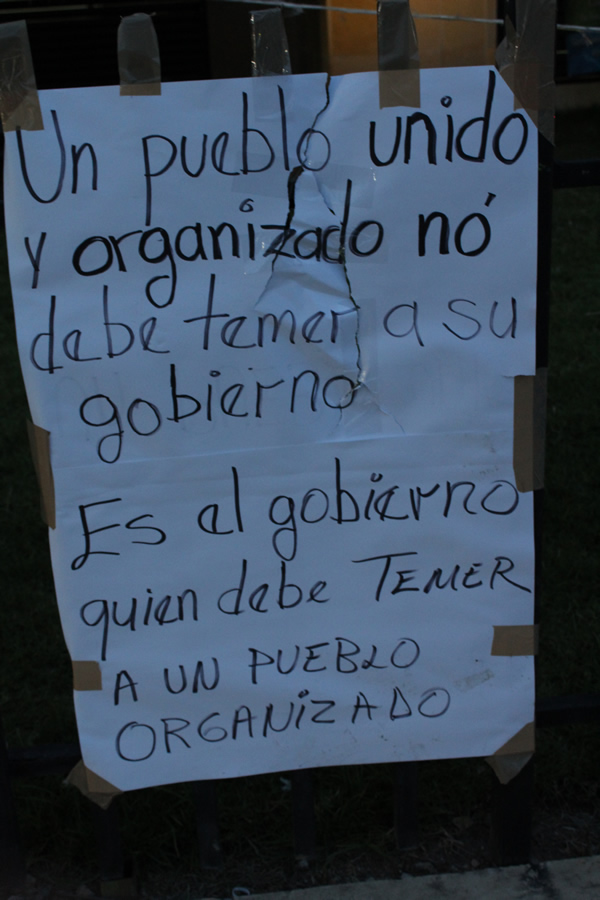 Un pueblo unido
y organizado nó
debe temer a su
gobierno
Es el gobierno
quien debe TEMER
A UN PUEBLO
ORGANIZADO